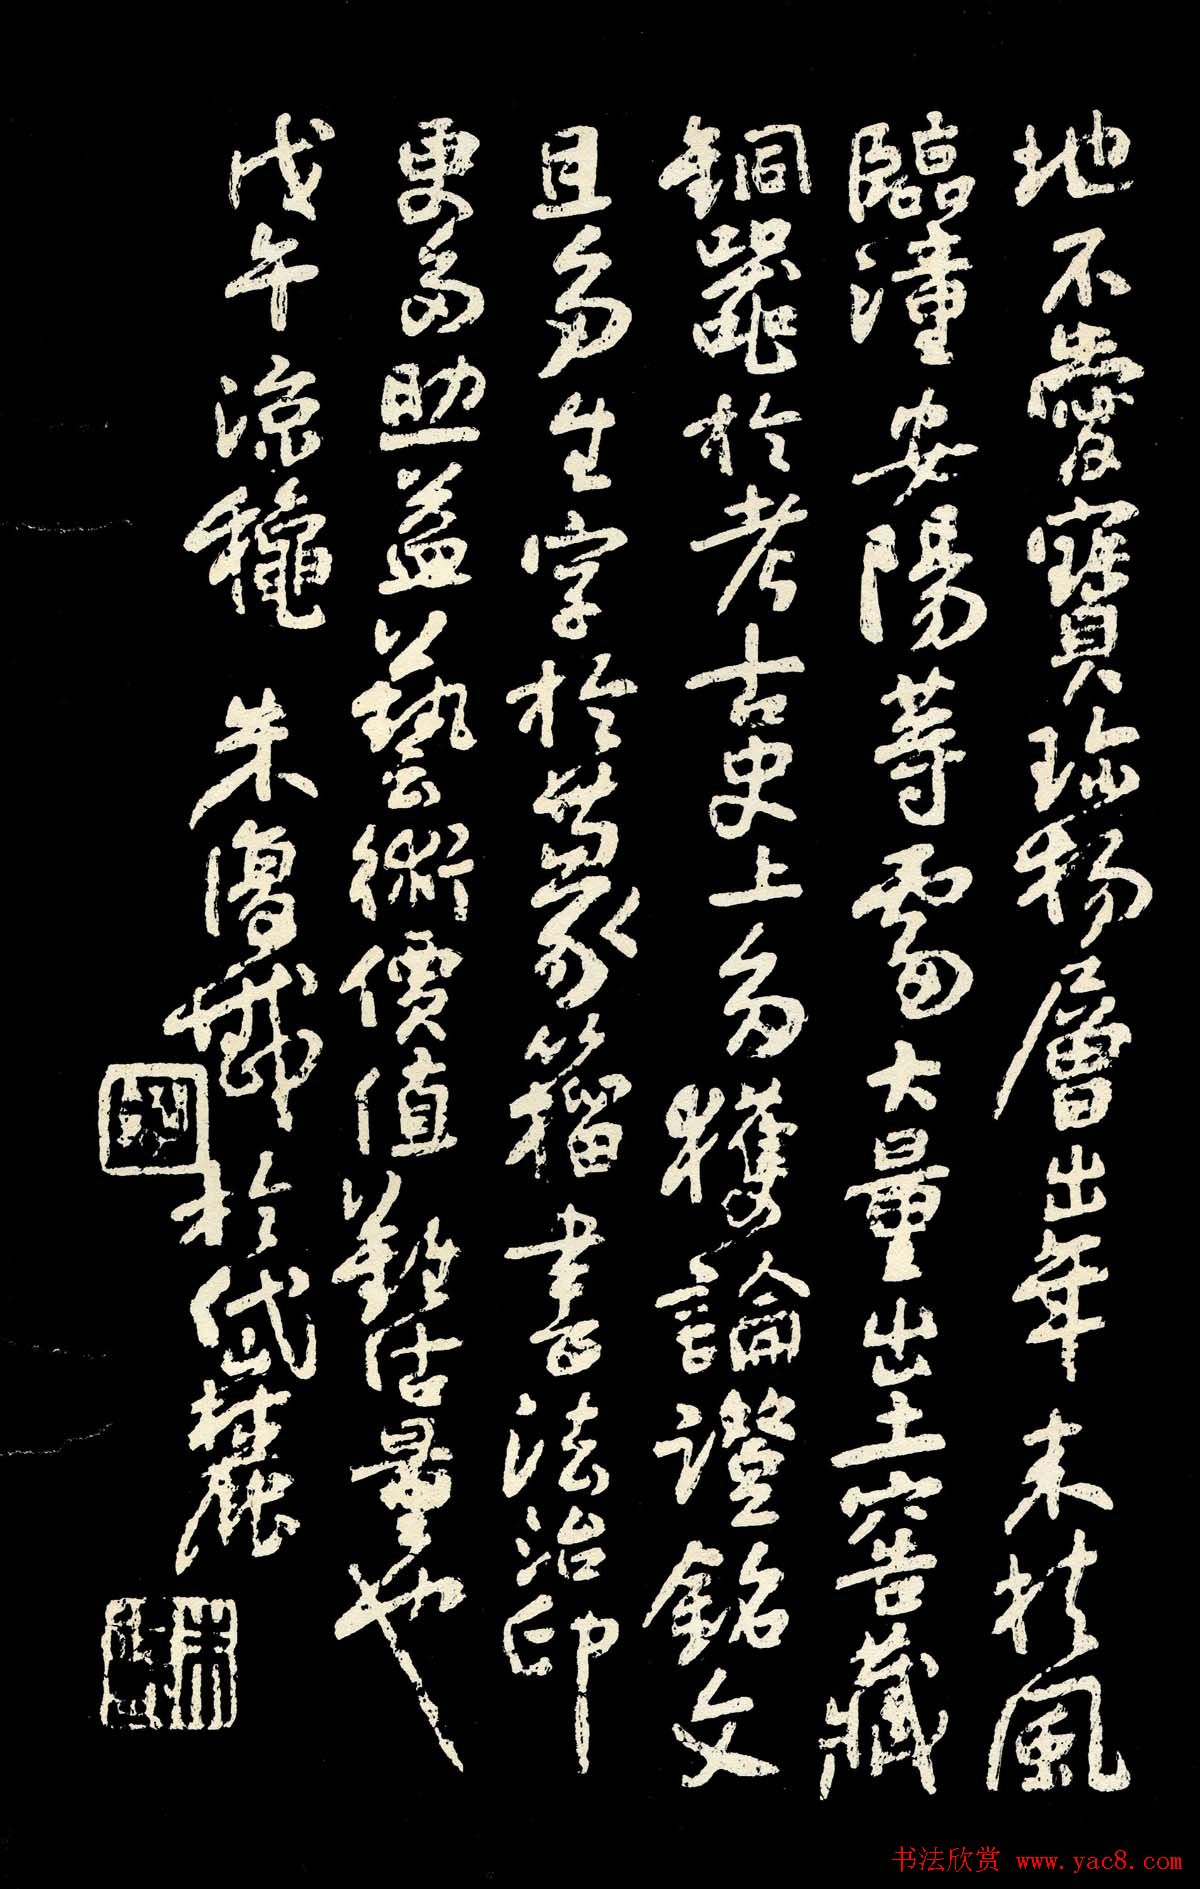 地不愛寶珍物層出年来扶風
臨潼安陽等處大量出土窖藏
銅器於考古史上多獲論證銘文
且多生字於篆籀書法治印
更多助益藝術價值難估量也
戊午涼穐 朱復戡於岱麓
书法欣赏 www.yac8.com